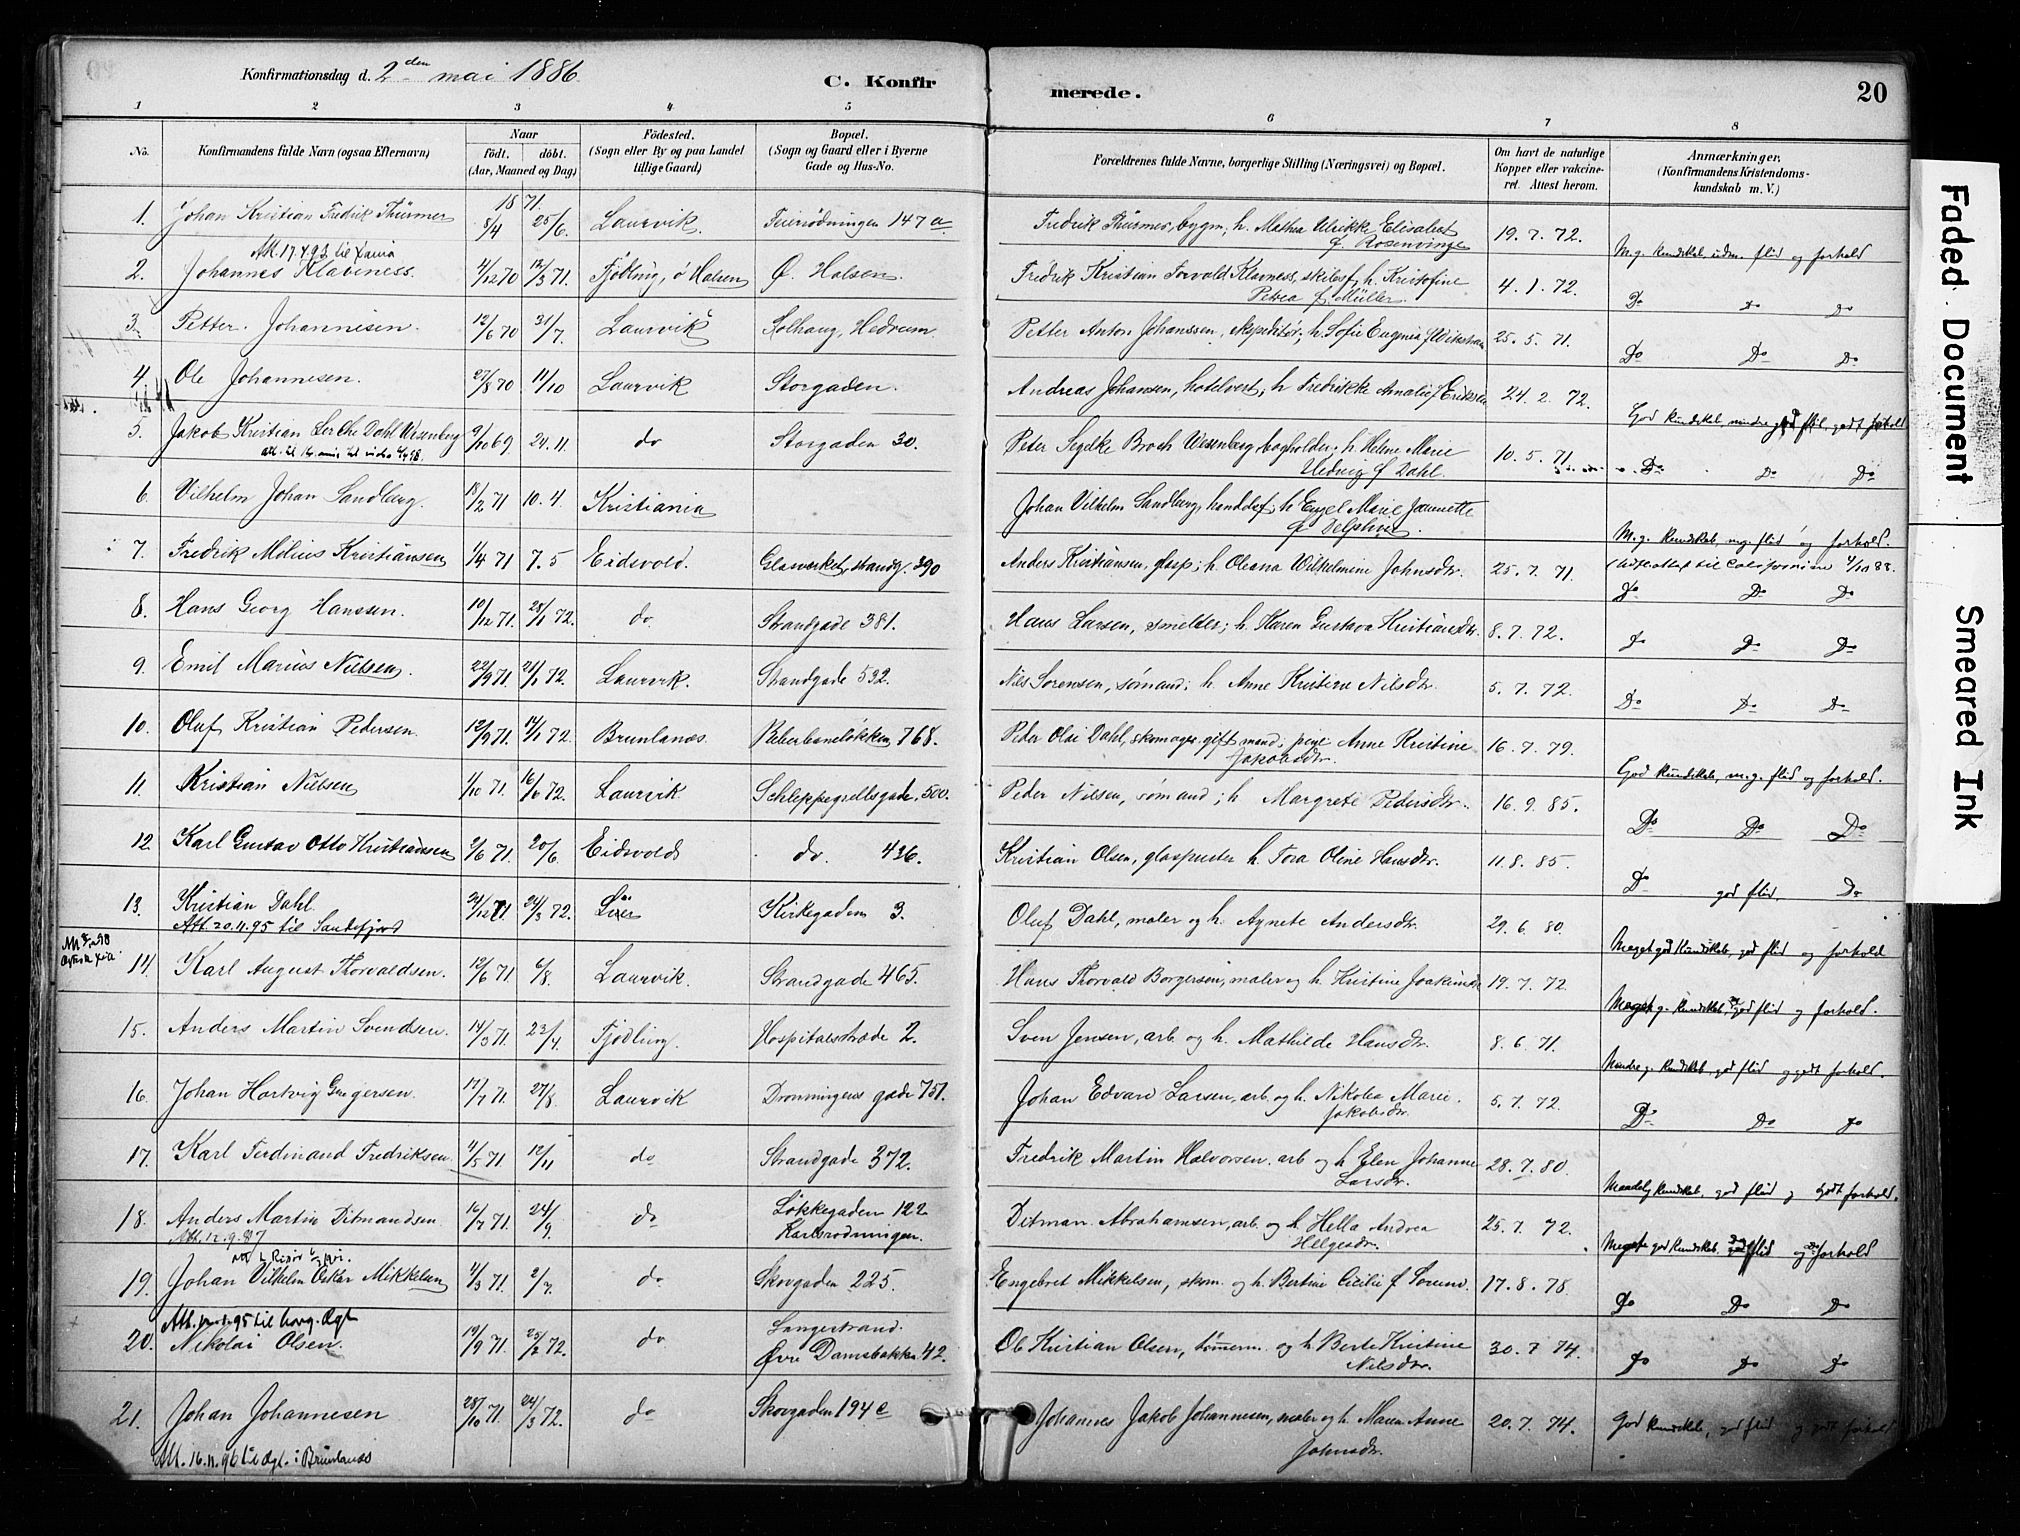 Konfirmationsdag d. 2den mai 1886
C. Konfirmerede.
20
1 2 3 4 5 6 7 8
No.
Konfirmandens fulde Navn (ogsaa Efternavn)
Naar
födt. döbt.
(Aar, Maaned og Dag)
Födested.
(Sogn eller By og paa Landet
tillige Gaard)
Bopæl.
(Sogn og Gaard eller i Byerne
Gade og Hus-No.
Forældrenes fulde Navne, borgerlige Stilling (Næringsvei) og Bopæl.
Om havt de naturlige
Kopper eller vakcine-
ret. Attest herom.
Anmærkninger.
(Konfirmandens Kristendoms-
kundskab m. V.)
1871.
1. Johan Kristian Fredrik Thürmer 8/4 25/6 Laurvik 147 a Fredrik Thürmer, bygm, h. Mathea Ulrikke Elisabet f Rosenvinge 19.7.72. M.g. kundskab, udm. flid og forhold
Att. 17.4.93 til
2. Johannes Klaveness. 4/12 70 12/3 71. Fjödling, ö Halsen Ö. Halsen. Fredrik Kristian Torvald Klavness, skibsf, h. Kristofine Petrea f Müller. 4.1.72. Do Do Do
3. Petter Johannesen. 12/6 70 31/7 Laurvik Kolhaug, Hedrum Petter Anton Johanssen, ekspeditör, h. Sofie Eugenia f 25.5.71. Do Do Do
4. Ole Johannesen. 27/8 70 11/10 Laurvik Storgaden. Andreas Johansen, hotelvert, h Fredrikke Amalie f Eriksen 24.2.72. God kundskab, mindre god flid, godt forhold
5. Jakob Kristian Lerche Dahl Wesenberg 9/10 69 24.11. do Storgaden 30. Peter Segelke Broch Wesenberg, bogholder, h. Helene Marie Hedvig f Dahl. 10.5.71. Do Do Do
6. Vilhelm Johan Sandberg. 18/2 71 10.4. Kristiania Johan Vilhelm Sandberg, handelsf, h Engel Marie Jeannette f Delphin. M.g. kundskab, mg. flid og forhold.
7. Fredrik Melius Kristiansen 1/4 71 7.5 Eidsvold. Glasverket, strandg. 390 Anders Kristiansen, glasp; h. Oleana Wilhelmine Johnsdtr. 25.7.71. Do Do Do
8. Hans Georg Hanssen. 10/12 71. 28/1 72. do Strandgade 381. Hans Larsen, smelter; h. Karen Gustava Kristiansdtr. 8.7.72. Do Do Do
9. Emil Marius Nielsen. 22/9 71. 21/1 72. Laurvik. Strandgade 532. Nils Sorensen, sömand; h. Anne Kristine Nilsdtr. 5.7.72. Do Do Do
10. Oluf Kristian Pedersen. 12/9 71. 14/1 72. Brunlanes. Reberbanelökken 768. Peder Olai Dahl, skomager, gift mand; pige Anne Kristine Jakobsdtr. 16.7.79. God kundskab, m.g. flid og forhold.
11. Kristian Nielsen 1/10 71. 72. Laurvik Schleppegrellsgade. 500. Peder Nilsen, sömand; h Margrete Pedersdtr. 16.9.85. Do Do Do
12. Karl Gustav Otto Kristiansen 2/6 71. 20/6. Eidsvold do. 436. Kristian Olsen, glaspuster h. Tora Oline Hansdtr. 11.8.85. Do god flid. Do
13. Kristian Dahl. 24/12 71. 24/3 72. Lier Kirkegaden 3. Oluf Dahl, maler og h. Agnete Andersdtr. 29.6.80. Meget god kundskab, god flid og forhold
Att. 20.11.95 til Sandefjord
14. Karl August Thorvaldsen. 12/6 71 6/8 Laurvik. Strandgade 465. Hans Thorvald Borgersen, maler og h. Kristine Joakimsdtr 19.7.72. Meget g. kundskab, god flid og forhold.
15. Anders Martin Svendsen. 14/3 71. 23/4. Fjödling. Hospitalsstræde 2. Sven Jensen, arb. og h. Mathilde Hansdtr. 8.6.71. Mindre g. kundskab, god flid og godt forhold.
16. Johan Hartvig Gregersen. 17/7 71. 27/8. Laurvik Dronningens gade 751. Johan Edvard Larsen, arb. og h. Nikolea Marie Jakobsdr. 5.7.72. Do Do Do
17. Karl Ferdinand Fredriksen 4/5 71 12/11 do Strandgade 372. Fredrik Martin Halvorsen. arb og h Elen Johanne Larsdr. 28.7.80. Maadelig kundskab. god flid og godt forhold.
18. Anders Martin Ditmandsen 16/7 71. 24/9. do Lökkegaden 122 Karlsrodningen. Ditman Abrahamsen, arb. og h. Hella Andrea Helgesdr. 25.7.72. Meget god kundskab. god flid og forhold
Att. 12.9.87
19. Johan Vilhelm Oskar Mikkelsen 4/3 71. 2/7 do Skovgaden 225. Engebret Mikkelsen, skom. og h. Bertine Cicilie f Sorens. 17.8.78. Do Do Do
95 til borg. Ægt
20. Nikolai Olsen. 19/9 71. 25/2 72. do Langestrand. Övre Damsbakken 42. Ole Kristian Olsen, tömmerm. og h Berte Kristine Nilsdtr. 30.7.74. Do Do Do
21. Johan Johannesen 28/10 71. 24/3 72. do Skovgaden 194 c Johannes Jakob Johannesen, maler og h. Maren Anne Johnsdtr. 20.7.74. God kundskab, god flid og godt forhold
Att. 16.11.96 til Ægt. i Brunlanæs
Faded Document
Smeared Ink